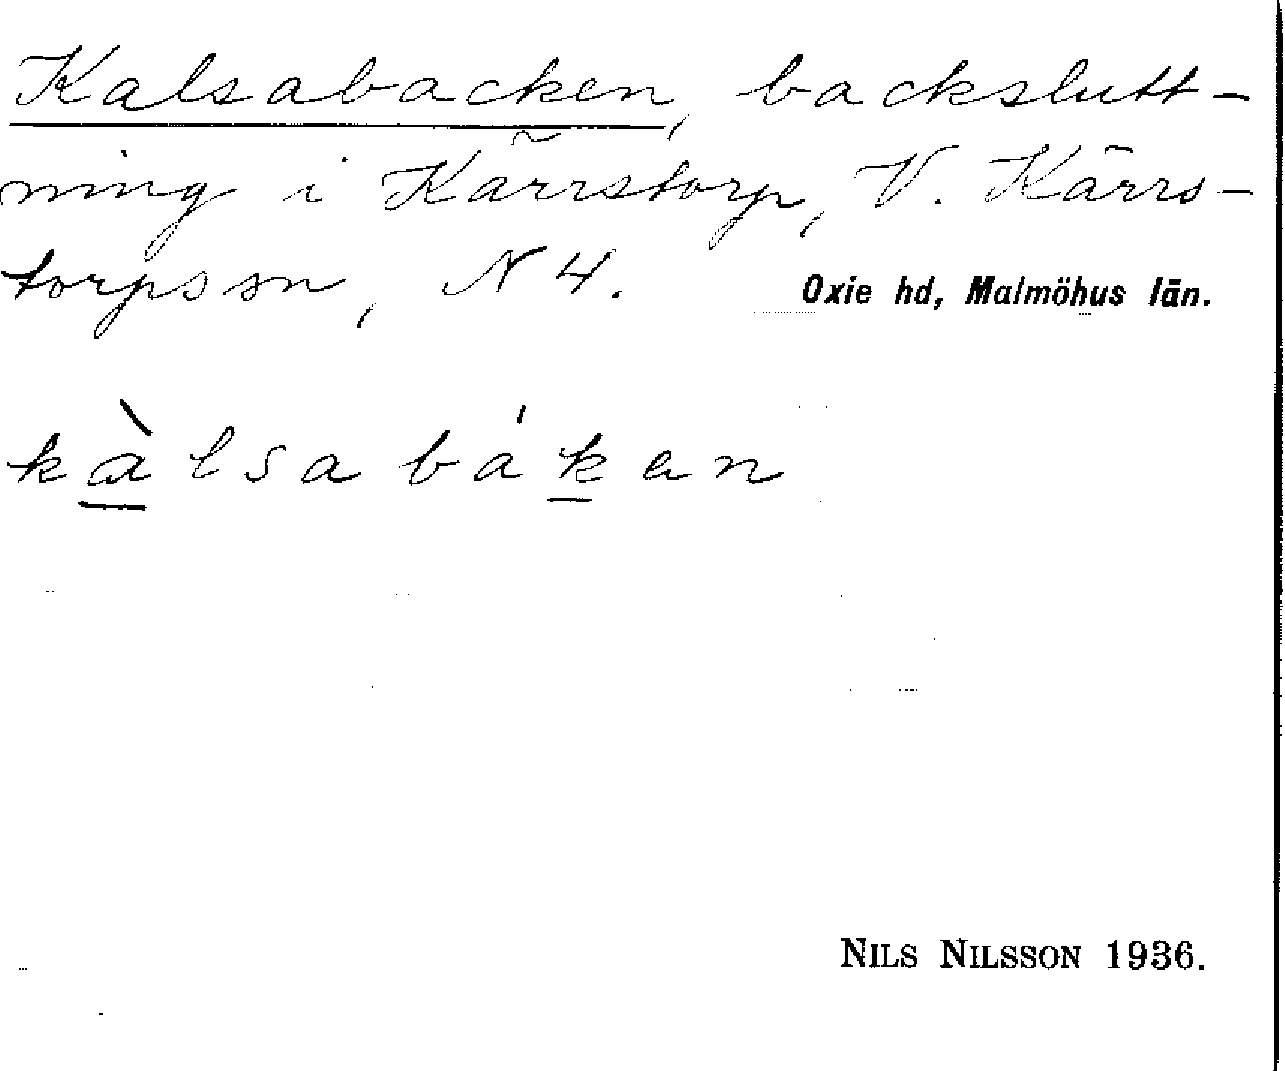 Kalsabacken, backslutt-
ning i Kärrstorp, V. Kärrs-
torps sn, N 4. Oxie hd, Malmöhus län.
kàlsabáken
NILS NILSSON 1936.